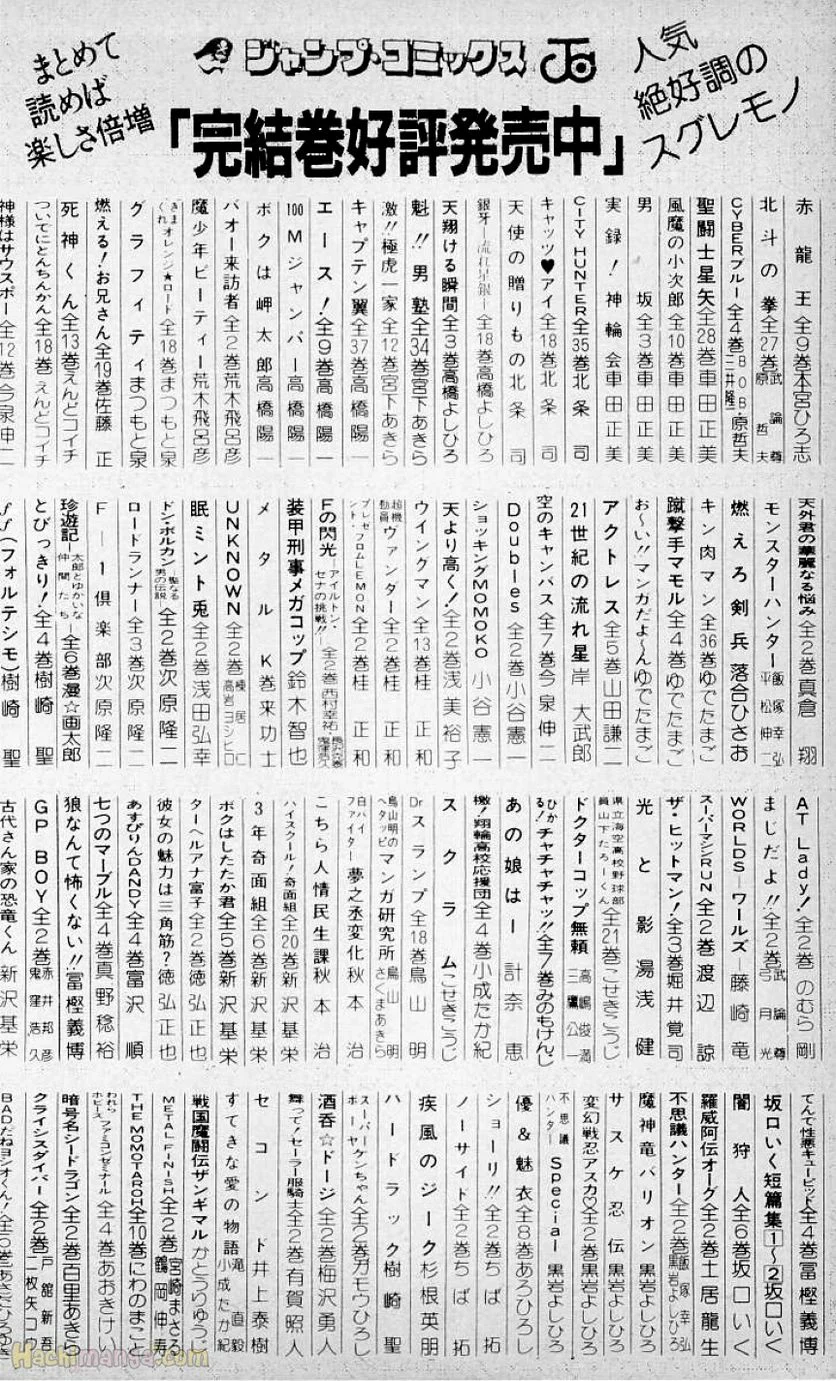 まとめて
読めば
楽しさ倍増
ジャンプ・コミックス
人気
絶好調の
スグレモノ
「完結巻好評発売中」
赤龍王全9巻本宮ひろ志
北斗の拳全27巻武論尊 原哲夫
CYBERブルー全4巻BOB・原哲夫 三井隆一
聖闘士星矢全28巻車田正美
風魔の小次郎全10巻車田正美
男坂全3巻車田正美
実録!神輪会車田正美
CITY HUNTER全35巻北条司
キャッツ♥アイ全18巻北条司
天使の贈りもの北条司
銀牙―流れ星銀―全18巻高橋よしひろ
天翔ける瞬間全3巻高橋よしひろ
魁!!男塾全34巻宮下あきら
激!!極虎一家全12巻宮下あきら
キャプテン翼全37巻高橋陽一
エース!全9巻高橋陽一
100Mジャンパー高橋陽一
ボクは岬太郎高橋陽一
バオー来訪者全2巻荒木飛呂彦
魔少年ビーティー荒木飛呂彦
きまぐれオレンジ★ロード全18巻まつもと泉
グラフィティまつもと泉
燃える!お兄さん全19巻佐藤正
死神くん全13巻えんどコイチ
ついでにとんちんかん全18巻えんどコイチ
神様はサウスポー全12巻今泉伸二
天外君の華麗なる悩み全2巻真倉翔
モンスターハンター飯塚幸弘 平松伸二
燃えろ剣兵落合ひさお
キン肉マン全36巻ゆでたまご
蹴撃手マモル全4巻ゆでたまご
お〜い!!マンガだよ〜んゆでたまご
アクトレス全5巻山田謙二
21世紀の流れ星岸大武郎
空のキャンバス全7巻今泉伸二
Doubles全2巻小谷憲一
ショッキングMOMOKO小谷憲一
天より高く!全2巻浅美裕子
ウイングマン全13巻桂正和
超機動員ヴァンダー全2巻桂正和
プレゼント・フロムLEMON全2巻桂正和
Fの閃光アイルトン・セナの挑戦!!全2巻西村幸祐・
装甲刑事メガコップ鈴木智也
メタルK巻来功士
UNKNOWN全2巻 高岩ヨシヒロ
眠兎全2巻浅田弘幸
ドン・ボルカン―聖なる男の伝説全2巻次原隆二
ロードランナー全3巻次原隆二
F-1倶楽部次原隆二
珍遊記―太郎とゆかいな仲間たち―全6巻漫☆画太郎
とびっきり!全4巻樹崎聖
ff(フォルテシモ)樹崎聖
AT Lady!全2巻のむら剛
まじだよ!!全2巻武論尊 弓月光
WORLDS―ワールズ―藤崎竜
スーパーマシンRUN全2巻渡辺諒
ザ・ヒットマン!全3巻堀井覚司
光と影湯浅健
県立海空高校野球部員山下たろーくん全21巻こせきこうじ
ドクターコップ無頼高嶋俊満 三鷹公一
ひかる!チャチャチャッ!!全7巻みのもけんじ
あの娘は―計奈恵
檄!翔輪高校応援団全4巻小成たか紀
スクラムこせきこうじ
Drスランプ全18巻鳥山明
鳥山明のヘタッピマンガ研究所鳥山明 さくまあきら
白ハイファイター夢之丞変化秋本治
こちら人情民生課秋本治
ハイスクール!奇面組全20巻新沢基栄
3年奇面組全6巻新沢基栄
ボクはしたたか君全5巻新沢基栄
ターヘルアナ富子全2巻徳弘正也
彼女の魅力は三角筋?徳弘正也
あすぴりんDANDY全4巻富沢順
七つのマーブル全4巻真野稔裕
狼なんて怖くない!!冨樫義博
GP BOY全2巻赤井邦彦 鬼窪浩久
古代さん家の恐竜くん新沢基栄
てんで性悪キューピッド全4巻冨樫義博
坂口いく短篇集1〜2坂口いく
闇狩人全6巻坂口いく
羅威阿伝オーグ全2巻土居龍生
不思議ハンター全2巻飯塚幸弘 黒岩よしひろ
魔神竜バリオン黒岩よしひろ
サスケ忍伝黒岩よしひろ
変幻戦忍アスカ♡全2巻黒岩よしひろ
不思議ハンターSpecial黒岩よしひろ
優&魅衣全8巻あろひろし
ショーリ!!全2巻ちば拓
ノーサイド全2巻ちば拓
疾風のジーク杉根英朋
ハードラック樹崎聖
スーパーボーヤケンちゃん全2巻ガモウひろし
酒呑☆ドージ全2巻梅沢勇人
舞って!セーラー服騎士全2巻有賀照人
セコンド井上泰樹
すてきな愛の物語滝直毅 小成たか紀
戦国魔闘伝ザンギマルかとうりゅうじ
METAL FINISH全2巻宮崎まさる 鶴岡伸寿
THE MOMOTAROH全10巻にわのまこと
われらホビーズファミコンゼミナール全4巻あおきけい
暗号名シードラゴン全2巻百里あきら
クライシスダイバー全2巻戸舘新吾 二枚矢コウ
BADだねヨシオくん!
Hachimanga.com